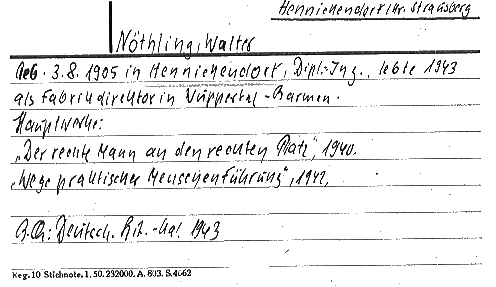 Hennickendorf Kr. Strausberg
Nöthling, Walter
Geb. 3.8.1905 in Hennickendorf, Dipl.-Ing., lebte 1943
als Fabrikdirektor in Wuppertal-Barmen.
Hauptwerke:
„Der rechte Mann an den rechten Platz", 1940.
„Wege praktischer Menschenführung", 1942.
Deutsch. Lit.-Kal. 1943
Reg. 10 Stichnote. 1. 50. 232000. A. 803. S. 4662